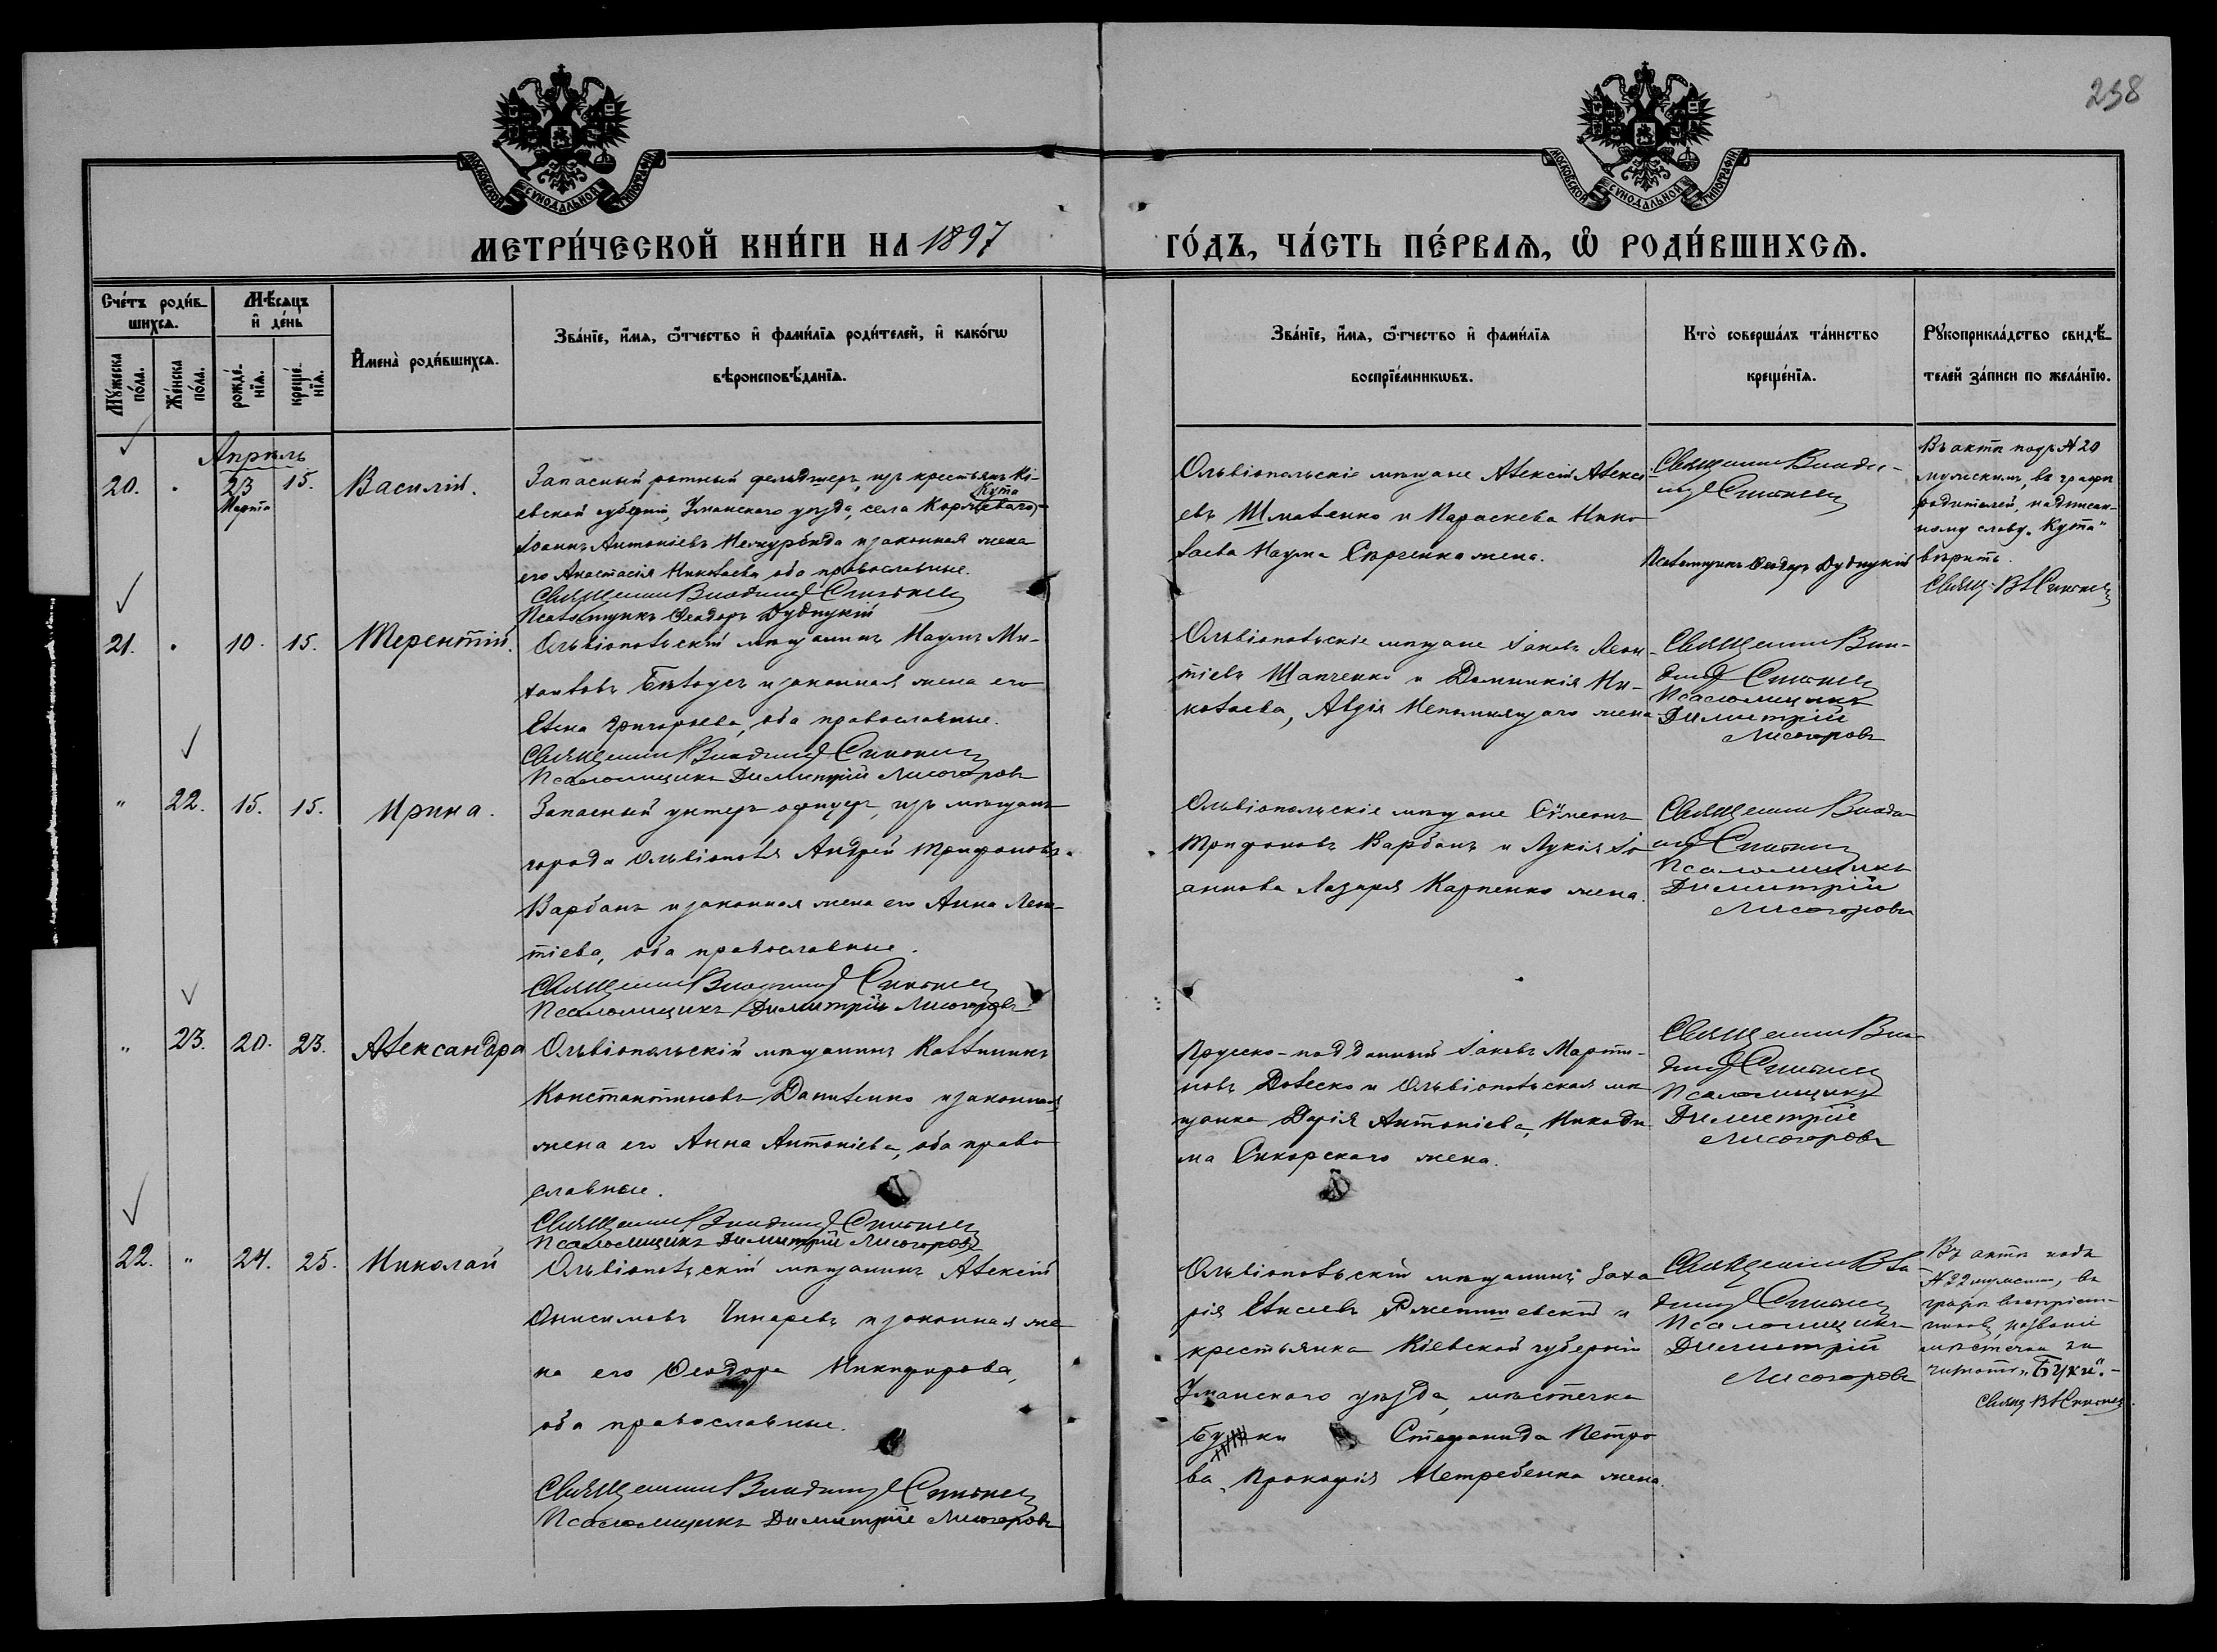 238
МОСКОВСКОЙ СѴНОДАЛЬНОЙ ТИПОГРАФІИ
МОСКОВСКОЙ СѴНОДАЛЬНОЙ ТИПОГРАФІИ
МЕТРИ́ЧЕСКОЙ КНИ́ГИ НА 1897
ГО́ДЪ, ЧА́СТЬ ПЕ́РВАѦ, Ѽ РОДИ́ВШИХСѦ.
Сче́тъ роди́в-
шихсѧ.
Мꙋ́жеска
по́ла.
Же́нска
по́ла.
Мѣ́сѧцъ
и҆ де́нь
рожде́-
нїѧ.
креще́-
нїѧ.
И҆мена̀ роди́вшихсѧ.
Зва́нїе, и҆́мѧ, ѻ҆́тчество и҆ фами́лїѧ роди́телей, и҆ како́гѡ
вѣроисповѣ́данїѧ.
Зва́нїе, и҆́мѧ, ѻ҆́тчество и҆ фами́лїѧ
воспрїе́мникѡвъ.
Кто̀ соверша́лъ та́инство
креще́нїѧ.
Рꙋкоприкла́дство свидѣ́-
телей за́писи по жела́нїю.
Апрѣль
20.
23
Марта
15.
Василій.
Запасный ротный фельдшеръ, изъ крестьянъ Кі-
Кута
евской губерніи, Уманскаго уѣзда, села
Іоаннъ Антоніевъ и законная жена
его Анастасія Николаева, оба православные.
Священникъ Владиміръ
Псаломщикъ Ѳеодоръ Дудницкій
Ольвіопольскіе мѣщане Алексій Алексі-
евъ Шматенко и Параскева Нико-
лаева Наума жена.
Священникъ Влади-
міръ
Псаломщикъ Ѳеодоръ Дудницкій
Въ актѣ подъ № 20
мужскимъ, въ графѣ
родителей, надписан-
ному слову „Кута"
вѣрить.
Свящ. Вл.
21.
10.
15.
Терентій.
Ольвіопольскій мѣщанинъ Наумъ Ми-
хаиловъ Бѣлоусъ и законная жена его
Елена Григорьева, оба православные.
Священникъ Владиміръ
Псаломщикъ Димитрій Лисогоровъ
Ольвіопольскіе мѣщане Іаковъ Леон-
тіевъ Шапченко и Домникія Ни-
колаева, Авдія Непомнящаго жена
Священникъ Вла-
диміръ
Псаломщикъ
Димитрій
Лисогоровъ
"
22.
15.
15.
Ирина.
Запасный унтеръ-офицеръ, изъ мѣщанъ
города Ольвіополя Андрей Трифоновъ
Варбанъ и законная жена его Анна Леон-
тіева, оба православные.
Священникъ Владиміръ
Псаломщикъ Димитрій Лисогоровъ
Ольвіопольскіе мѣщане Сѵмеонъ
Трифоновъ Варбанъ и Лукія Іо-
аннова Лазаря Карпенко жена.
Священникъ Влади-
міръ
Псаломщикъ
Димитрій
Лисогоровъ
"
23.
20.
23.
Александра
Ольвіопольскій мѣщанинъ Каллиникъ
Константиновъ Даниленко и законная
жена его Анна Антоніева, оба право-
славные.
Священникъ Владиміръ
Псаломщикъ Димитрій Лисогоровъ
Прусско-подданный Іаковъ Марти-
новъ и Ольвіопольская мѣ-
щанка Дарія Антоніева, Никоди-
ма Сикорскаго жена.
Священникъ Вла-
диміръ
Псаломщикъ
Димитрій
Лисогоровъ
22.
"
24.
25.
Николай
Ольвіопольскій мѣщанинъ Алексій
Онисимовъ и законная же-
на его Ѳеодора Никифорова,
оба православные.
Священникъ Владиміръ
Псаломщикъ Димитрій Лисогоровъ
Ольвіопольскій мѣщанинъ Заха-
рія и
крестьянка Кіевской губерніи
Уманскаго уѣзда, мѣстечка
Буки Стефанида Петро-
ва, Прокофія Нетребенка жена.
Священникъ Вла-
диміръ
Псаломщикъ
Димитрій
Лисогоровъ
Въ актѣ подъ
№ 22 мужскимъ, въ
графѣ воспріем-
никовъ, названіе
мѣстечка
читать „Буки".-
Свящ. Вл.